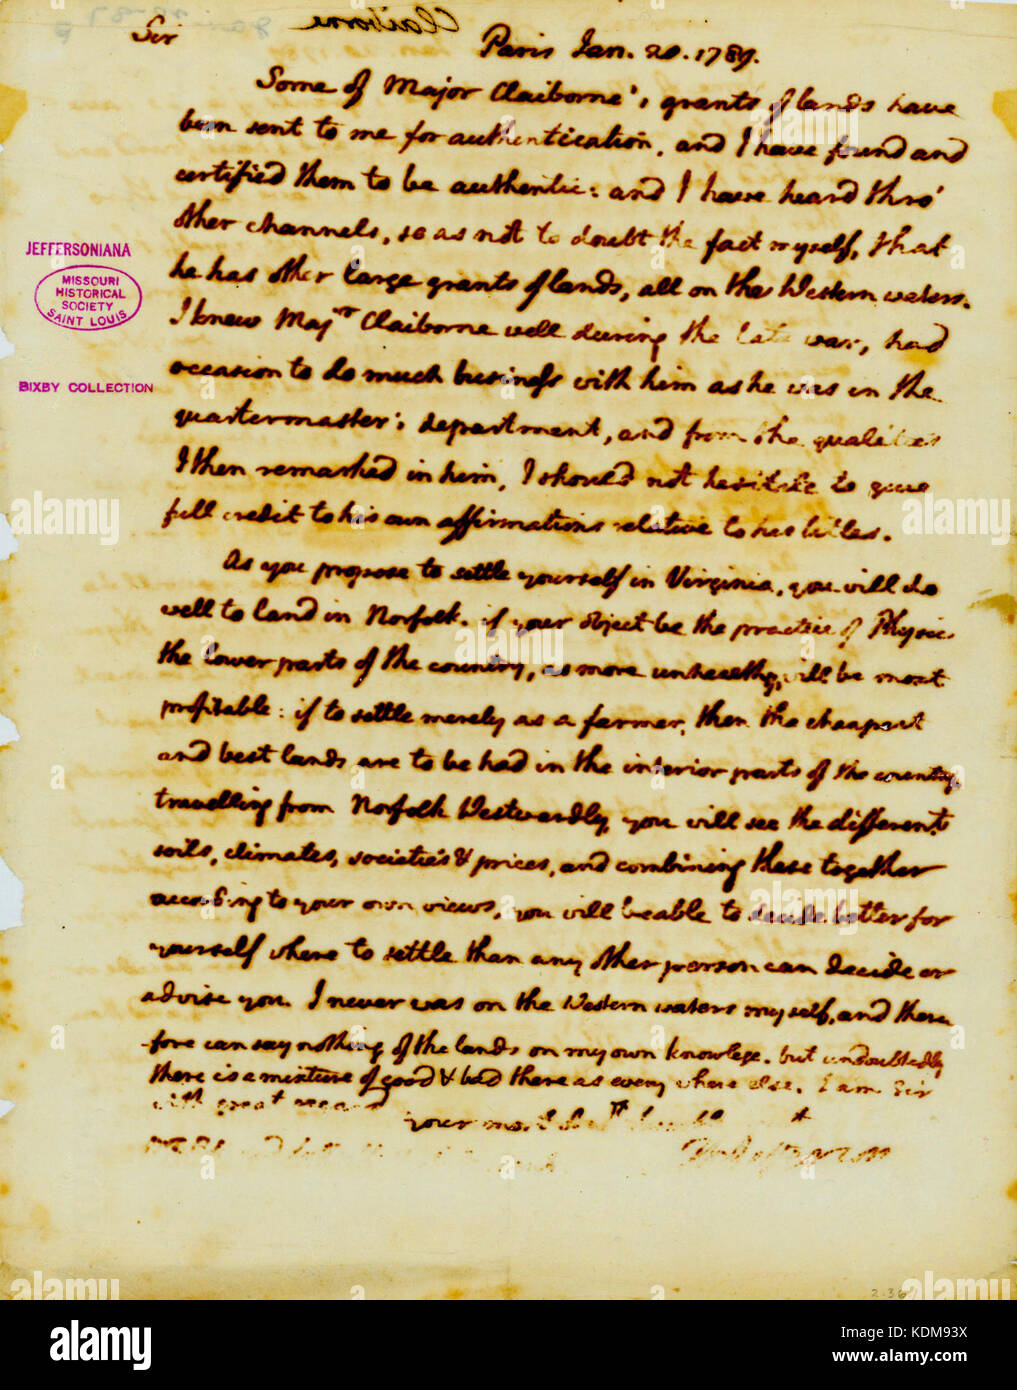 Claiborne
Sir
Paris Jan. 20. 1789.
Some of Major Claiborne's grants of lands have
been sent to me for authentication, and I have found and
certified them to be authentic: and I have heard thro'
other channels, so as not to doubt the fact myself, that
he has other large grants of lands, all on the Western waters.
I knew Majr. Claiborne well during the late war, had
occasion to do much business with him as he was in the
quartermaster's department, and from the qualities
I then remarked in him, I should not hesitate to give
full credit to his own affirmations relative to his titles.
As you propose to settle yourself in Virginia, you will do
well to land in Norfolk. if your object be the practice of Physic
the lower parts of the country, as more unhealthy, will be most
profitable: if to settle merely as a farmer, then the cheapest
and best lands are to be had in the interior parts of the country.
travelling from Norfolk Westwardly, you will see the different
soils, climates, societies & prices, and combining these together
according to your own views, you will be able to decide better for
yourself where to settle than any other person can decide or
advise you. I never was on the Western waters myself, and there
-fore can say nothing of the lands on my own knowlege. but undoubtedly
there is a mixture of good & bad there as every where else. I am Sir
with great regard
your most
Th: Jefferson
JEFFERSONIANA
MISSOURI
HISTORICAL
SOCIETY
SAINT LOUIS
BIXBY COLLECTION
alamy stock photo
alamy
KDM93X
www.alamy.com